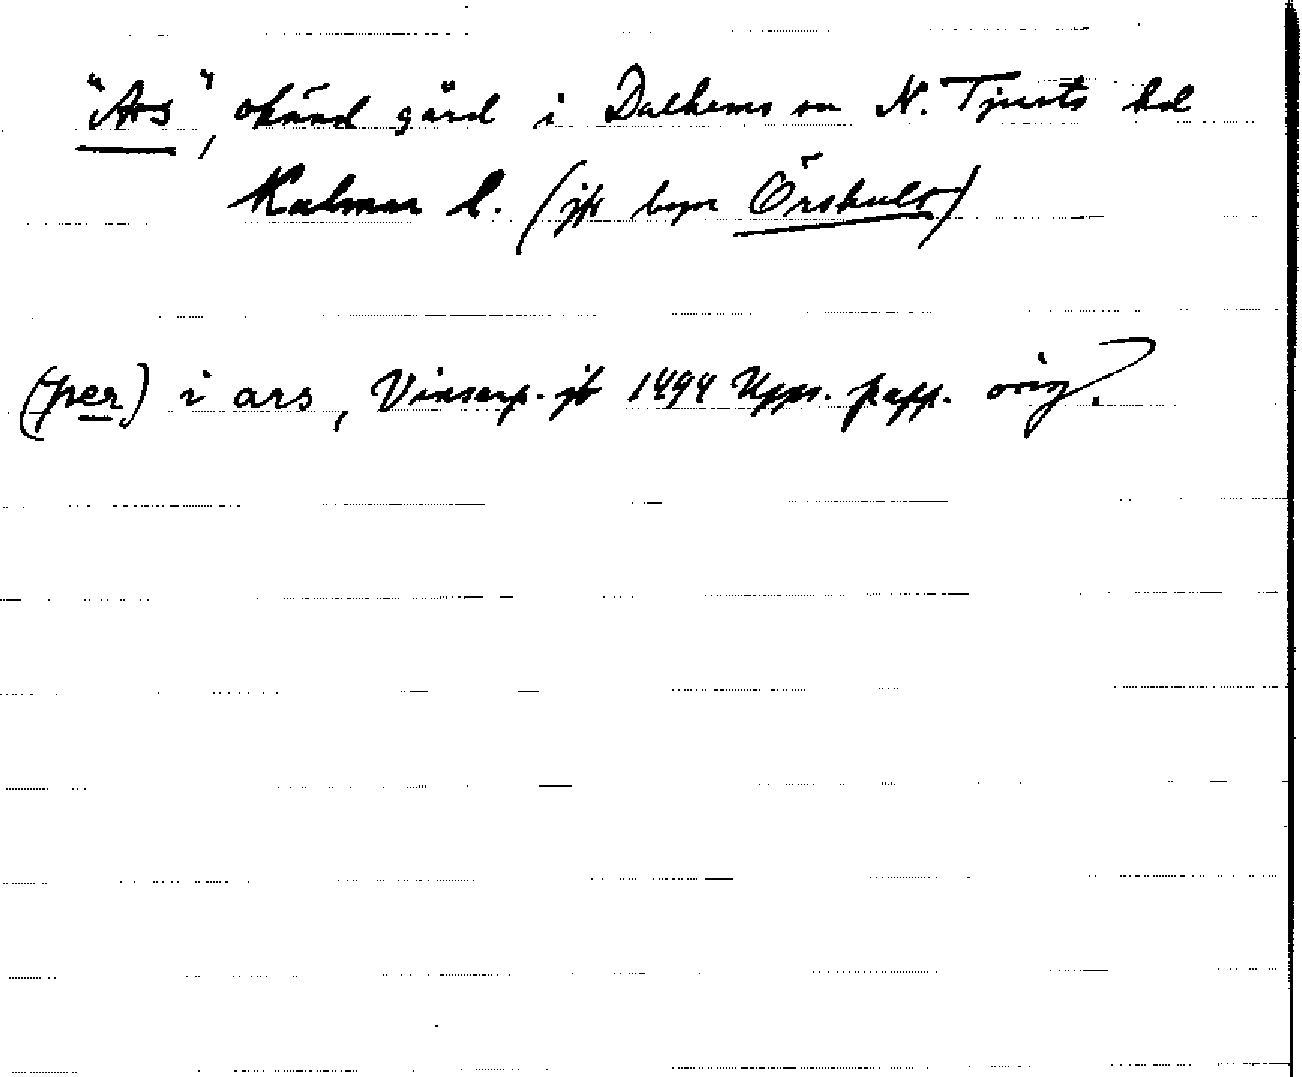 "Ars", okänd gård i Dalhems sn N. Tjusts hd
Kalmar l. (jfr byn Örskulo)
(per) i ars, Vinsarp. jb 1494 Upps. papp. orig.